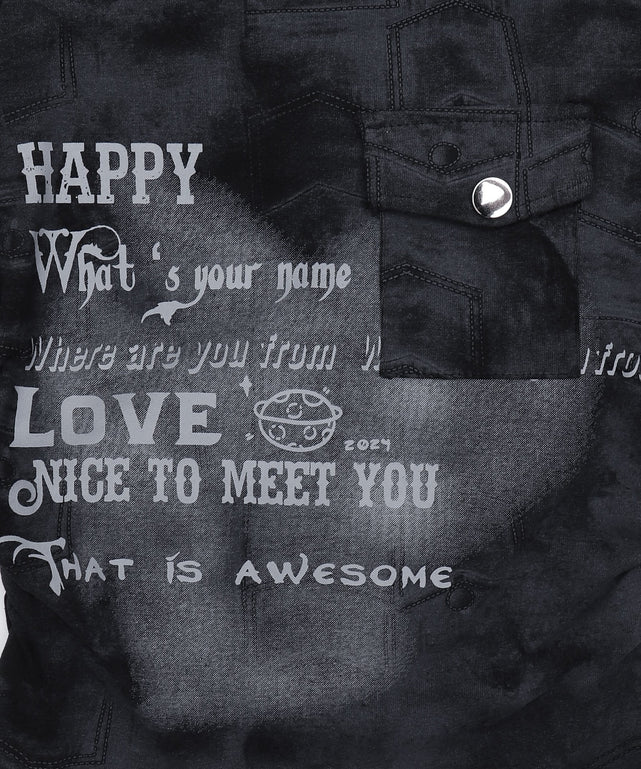 HAPPY
What 's your name
Where are you from
LOVE
2024
NICE TO MEET YOU
THAT IS AWESOME